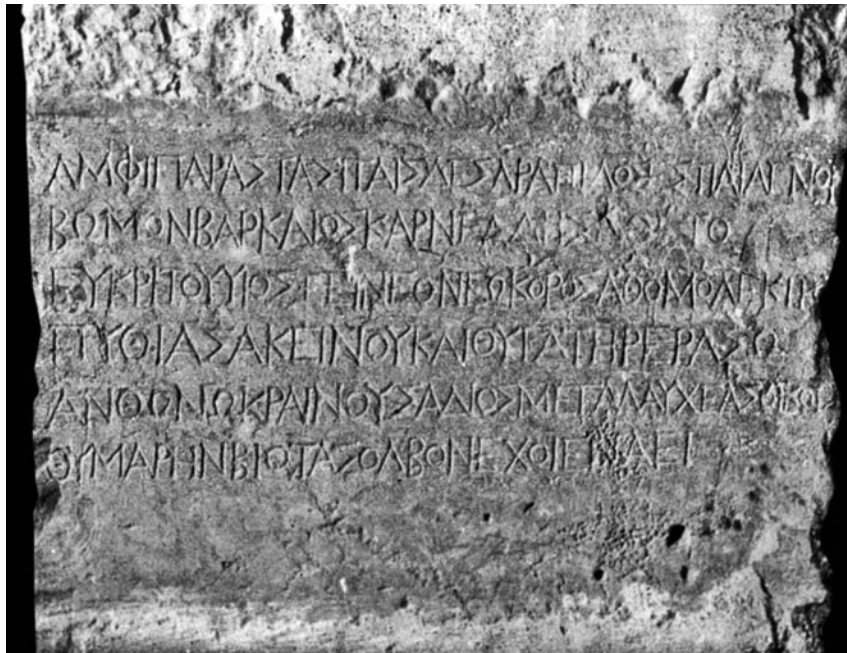 ΑΜΦΙΠΑΡΑΣΤΑΣΙΤΑΙΣΔΕΣΑΡΑΠΙΔΟΣΕΣΤΙΑΙΑΓΝΟΝ
ΒΩΜΟΝΒΑΡΚΑΙΟΣΚΑΡΝΕΑΔΗΣΕΘΕΤΟ
ΕΥΚΡΙΤΟΥΥΙΟΣΞΕΙΝΕΟΝΕΩΚΟΡΟΣΑΘΟΜΟΛΕΚΤΡ
ΠΥΘΙΑΣΑΚΕΙΝΟΥΚΑΙΘΥΓΑΤΗΡΕΡΑΣΩ
ΑΝΘΩΝΩΚΡΑΙΝΟΥΣΑΔΙΟΣΜΕΓΑΛΑΥΧΕΑΣΟΙΚΟΥ
ΘΥΜΑΡΗΝΒΙΟΤΑΣΟΛΒΟΝΕΧΟΙΕΝΑΕΙ